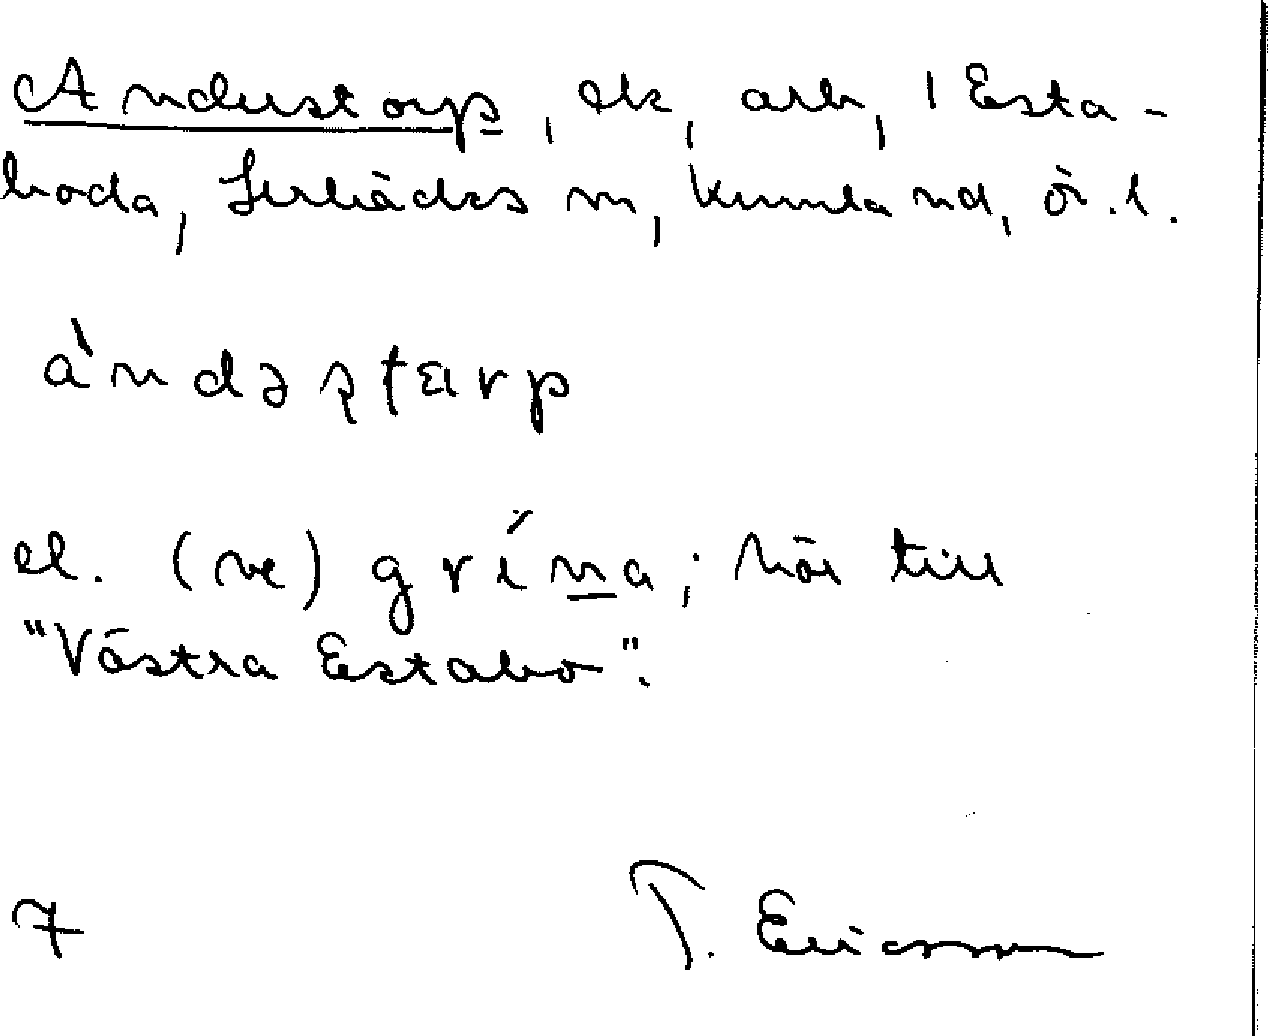 Anderstorp, ek, arb, 1 Esta-
boda, Lerbäcks sn, Kumla hd, ör.l.
àndəʂʈarp
el. (ve) grína; hör till
"Västra Estabo".
7 T. Ericsson